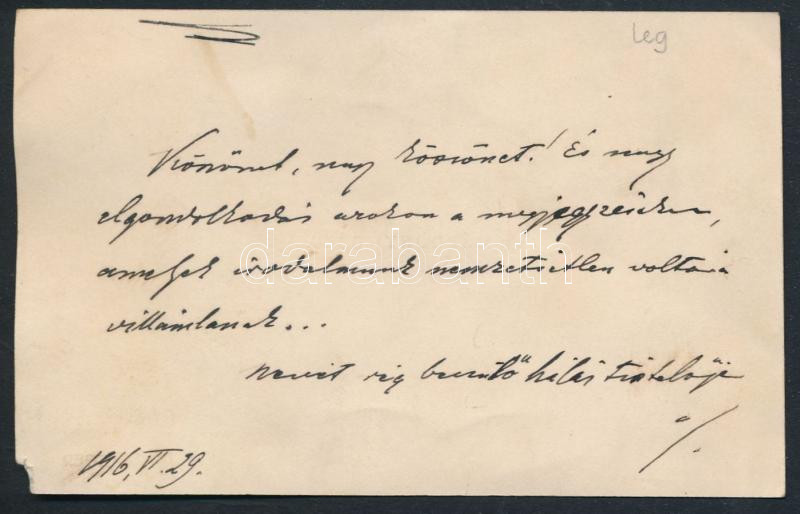 leg
Köszönet, nagy köszönet! És nagy
elgondolkodás azokon a megjegyzéseken,
amelyek irodalmunk nemzetietlen voltára
villámlanak...
hálás tisztelője
1916. VI. 29.
darabanth